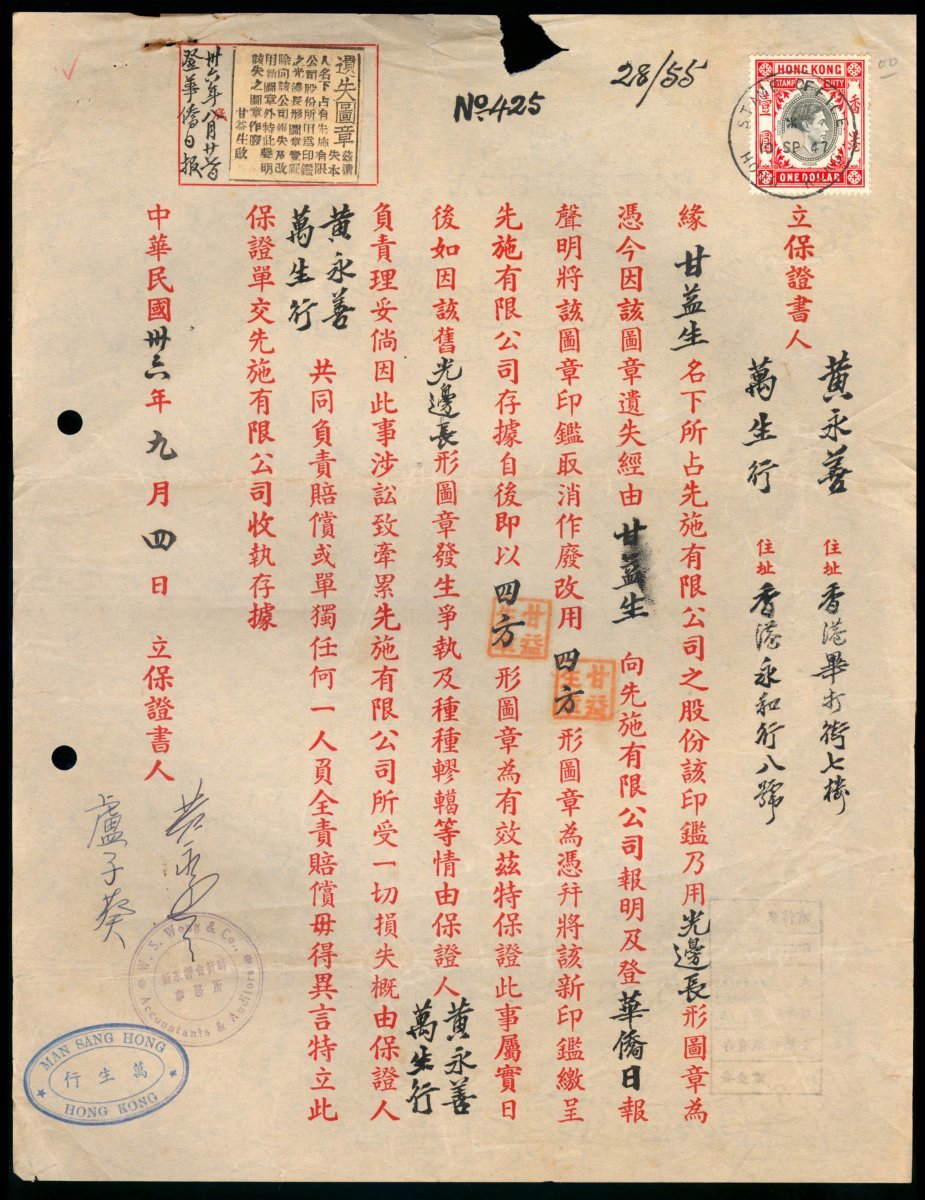 28/55
No 425
HONG KONG
STAMP DUTY
香港
壹圓
ONE DOLLAR
STAMP OFFICE
SP 47
HONG KONG
立保證書人
黃永善 住址 香港畢打街七樓
萬生行 住址 香港永和行八號
緣 甘益生 名下所占先施有限公司之股份該印鑑乃用光邊長形圖章為
憑今因該圖章遺失經由 甘益生 向先施有限公司報明及登華僑日報
聲明將該圖章印鑑取消作廢改用 四方 形圖章為憑幷將該新印鑑繳呈
先施有限公司存據自後即以 四方 形圖章為有效茲特保證此事屬實日
後如因該舊光邊長形圖章發生爭執及種種轇轕等情由保證人 黃永善 萬生行
負責理妥倘因此事涉訟致牽累先施有限公司所受一切損失概由保證人
黃永善 萬生行 共同負責賠償或單獨任何一人負全責賠償毋得異言特立此
保證單交先施有限公司收執存據
中華民國卅六年九月四日 立保證書人
盧子葵
甘益生
甘益生
遺失圖章
人名下占有先施有限
公司股份所用爲印鑑
之光邊長形圖章
除向該公司報失及改
用新圖章外特此聲明
該失之圖章作廢
甘益生啟
卅六年八月廿
登華僑日報
W. S. Wong & Co.,
Accountants & Auditors
MAN SANG HONG
萬生行
HONG KONG